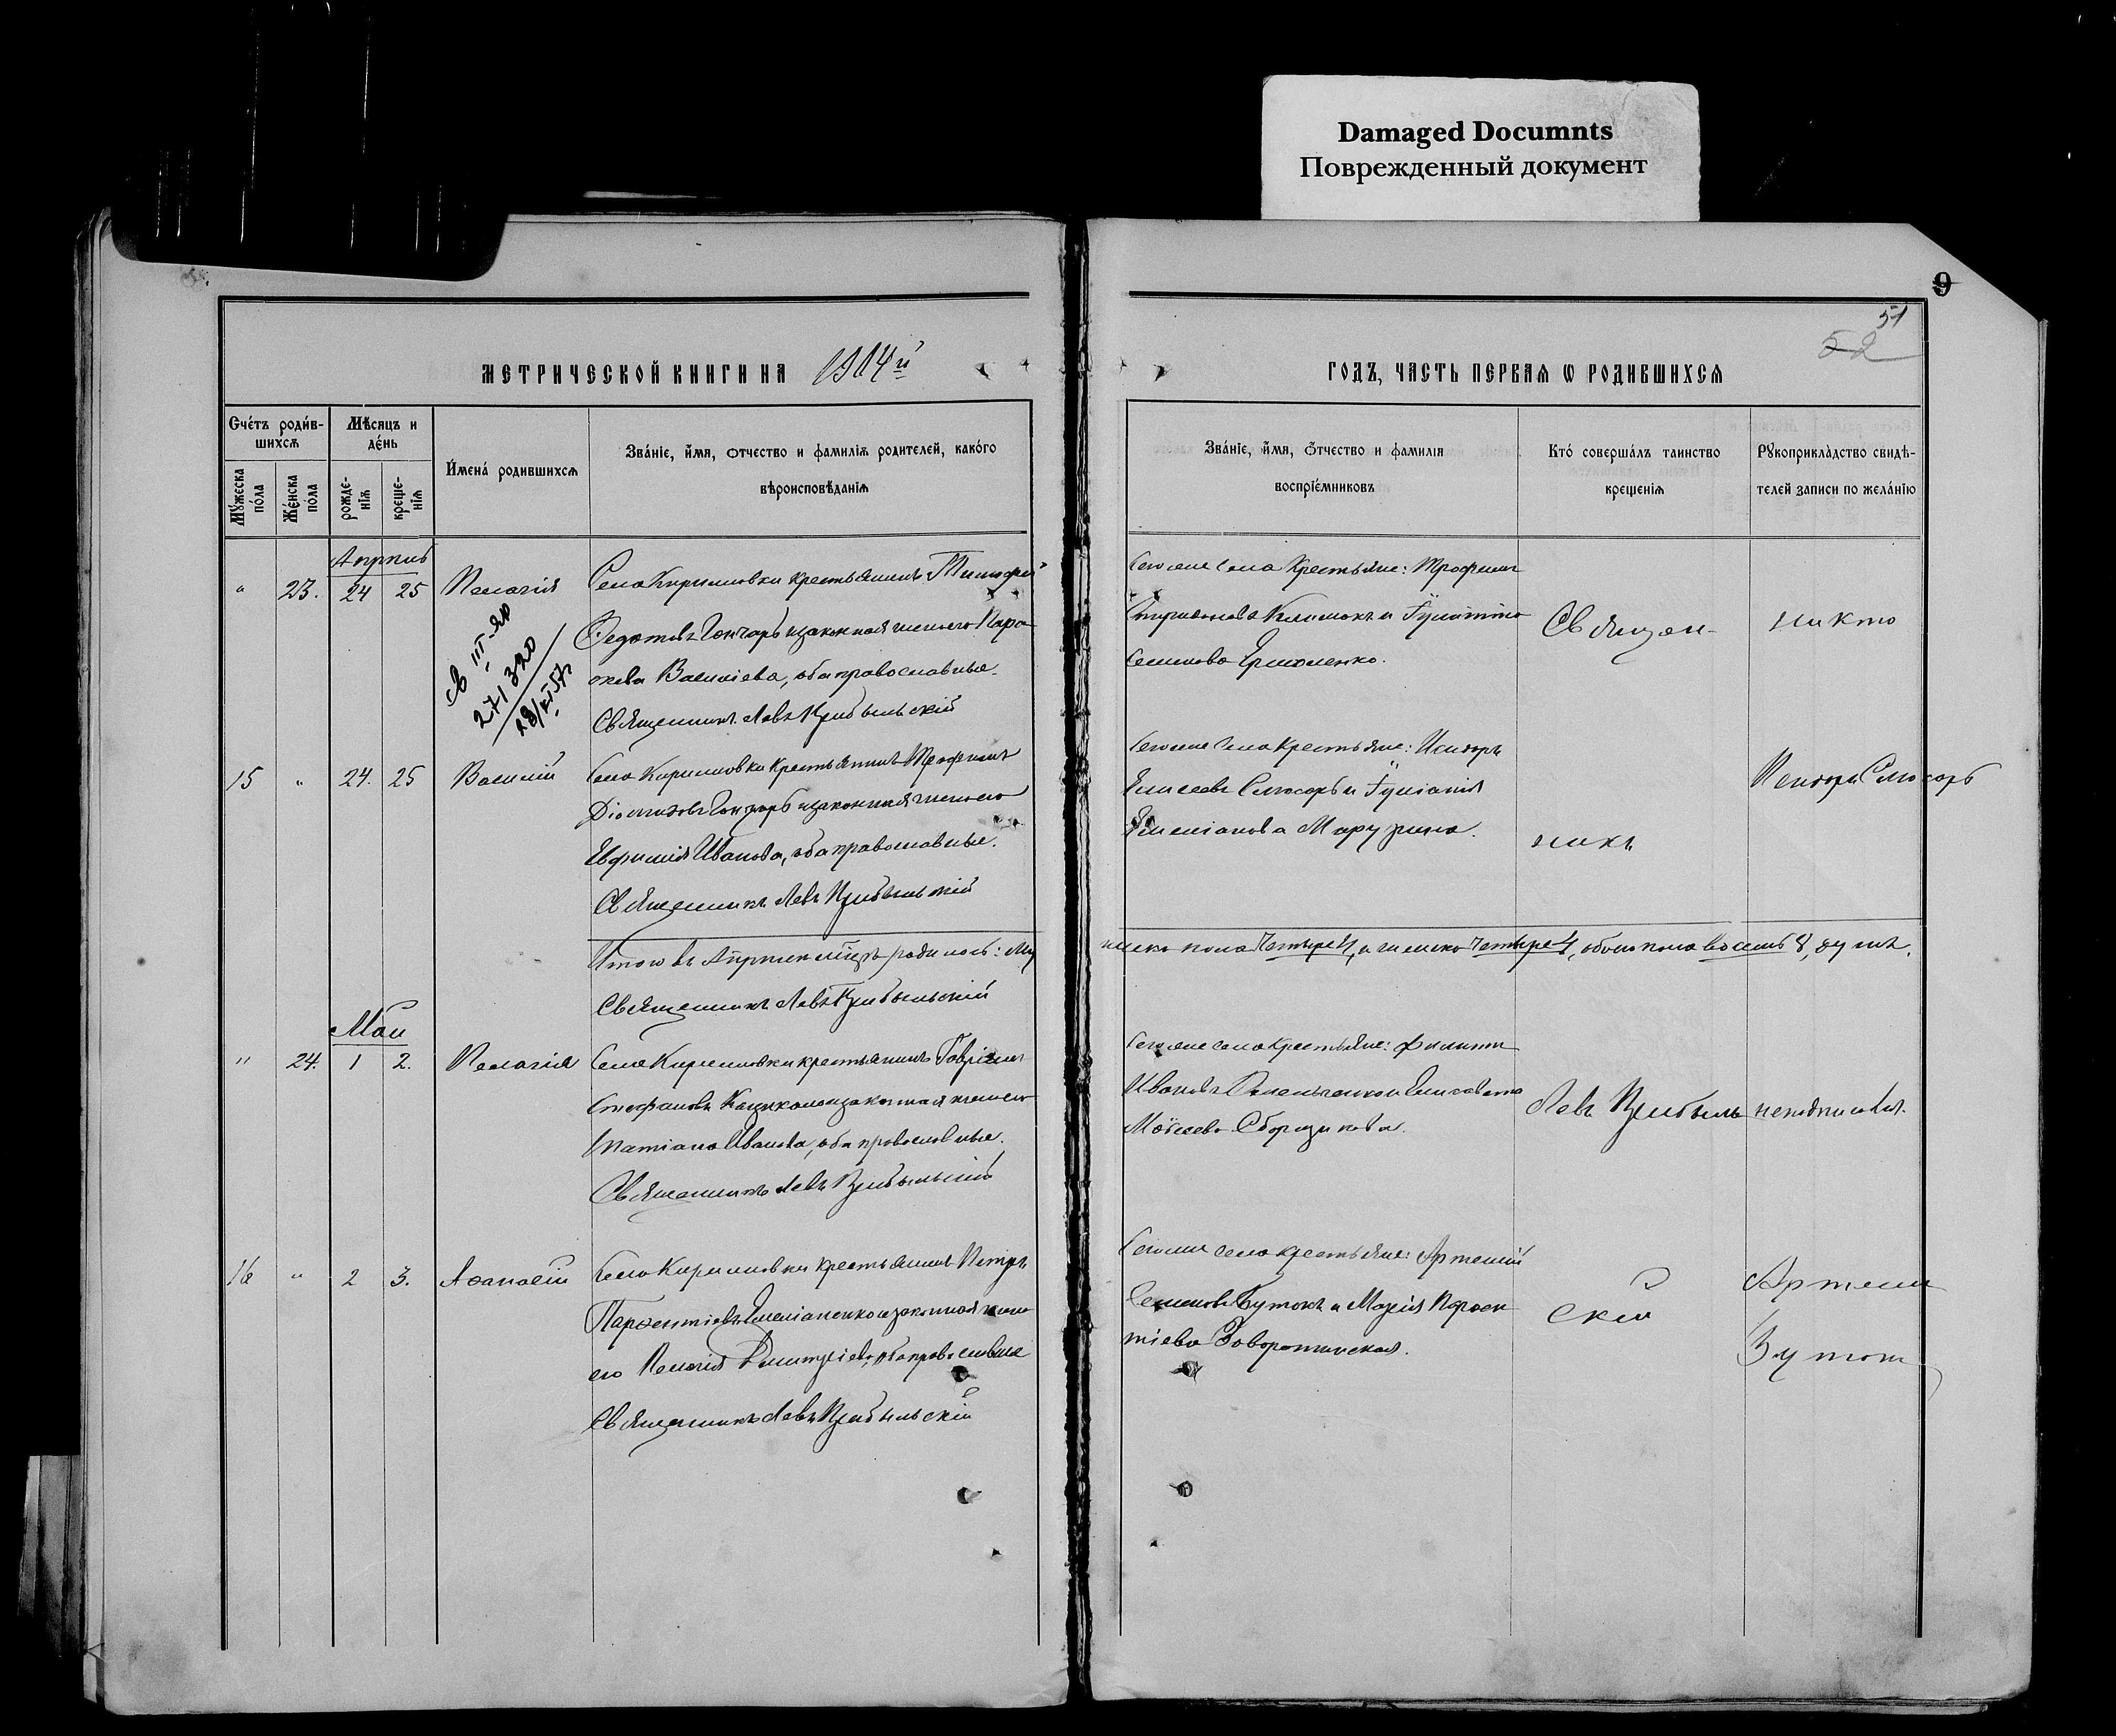 Damaged Documnts
Поврежденный документ
9
51
52
МЕТРИЧЕСКОЙ КНИГИ НА 1904й
ГОДЪ, ЧАСТЬ ПЕРВАЯ Ѡ РОДИВШИХСЯ
Счéтъ роди́в-
шихсѧ
Мѣсяцъ и
дéнь
Мꙋжеска
пóла
Жéнска
пóла
рожде-
нїѧ
креще-
нїѧ
И́мена́ родившихсѧ
Зва́нїе, и́мя, ѻтчество и фамилїѧ родителей, како́го
вѣроисповѣданїѧ
Зва́нїе, и́мя, ѻ́тчество и фамилїѧ
воспрїе́мниковъ
Кто́ соверша́лъ таинство
крещенїѧ
Рꙋкоприкла̀дство свидѣ-
телей записи по жела́нїю
Апрель
" 23. 24 25 Пелагія
св III-ЯР
271320
Села Кирилловки крестьянинъ Тимофей
Федотовъ Гончаръ и законная жена его Пара-
скева Василіева, оба православные.
Священникъ Левъ Прибыльскій
Того же села крестьяне: Трофимъ
Климокъ и
Семенова Ермоленко.
Священ-
никто
15 " 24. 25 Василій
Села Кирилловки крестьянинъ Трофимъ
Діомидовъ Гончаръ и законная жена его
Евфимія Иванова, оба православные.
Священникъ Левъ Прибыльскій
Того же села крестьяне: Исидоръ
Елисеевъ Слюсарь и Іуліанія
Емеліанова Марузина.
никъ
Исидоръ Слюсарь
Итого въ Апреле мѣсяцѣ родилось: му
жеска пола четыре 4, а женска четыре 4, обоего пола восемь 8, душъ.
Священникъ Левъ Прибыльскій
Май
" 24. 1 2. Пелагія
Села Кирилловки крестьянинъ Гавріилъ
Стефановъ и законная жена его
Татіана Иванова, оба православные.
Священникъ Левъ Прибыльскій
Того же села крестьяне: Филиппъ
Ивановъ и Елисавета
Моѵсеева
Левъ Прибыль
неподписался.
16 " 2 3. Аѳанасій
Села Кирилловки крестьянинъ Петръ
Парѳентіевъ Емеліаненко и законная жена
его Пелагія Димитріева, оба православные
Священникъ Левъ Прибыльскій
Того же села крестьяне: Артемій
Семеновъ Бутокъ и Марія Парѳен
тіева Заворотинская.
скій
Артемій
Бутокъ